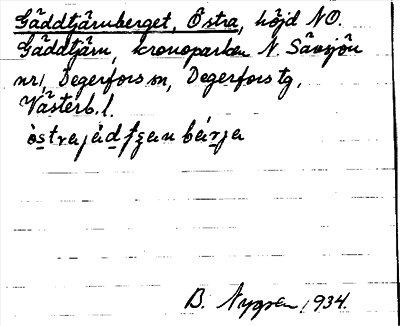 Gäddtjärnberget, Östra, höjd NO.
Gäddtjärn, kronoparken N. Sävsjön
nr1, Degerfors sn, Degerfors tg,
Västerb. l.
B. Nygren 1934.